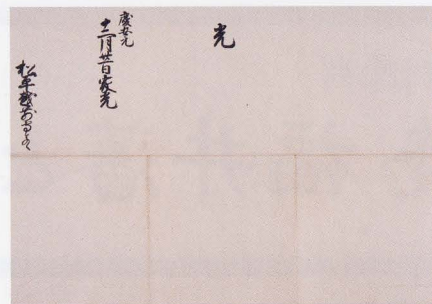 光
慶安元
十二月卅日家光
松平越前守とのへ